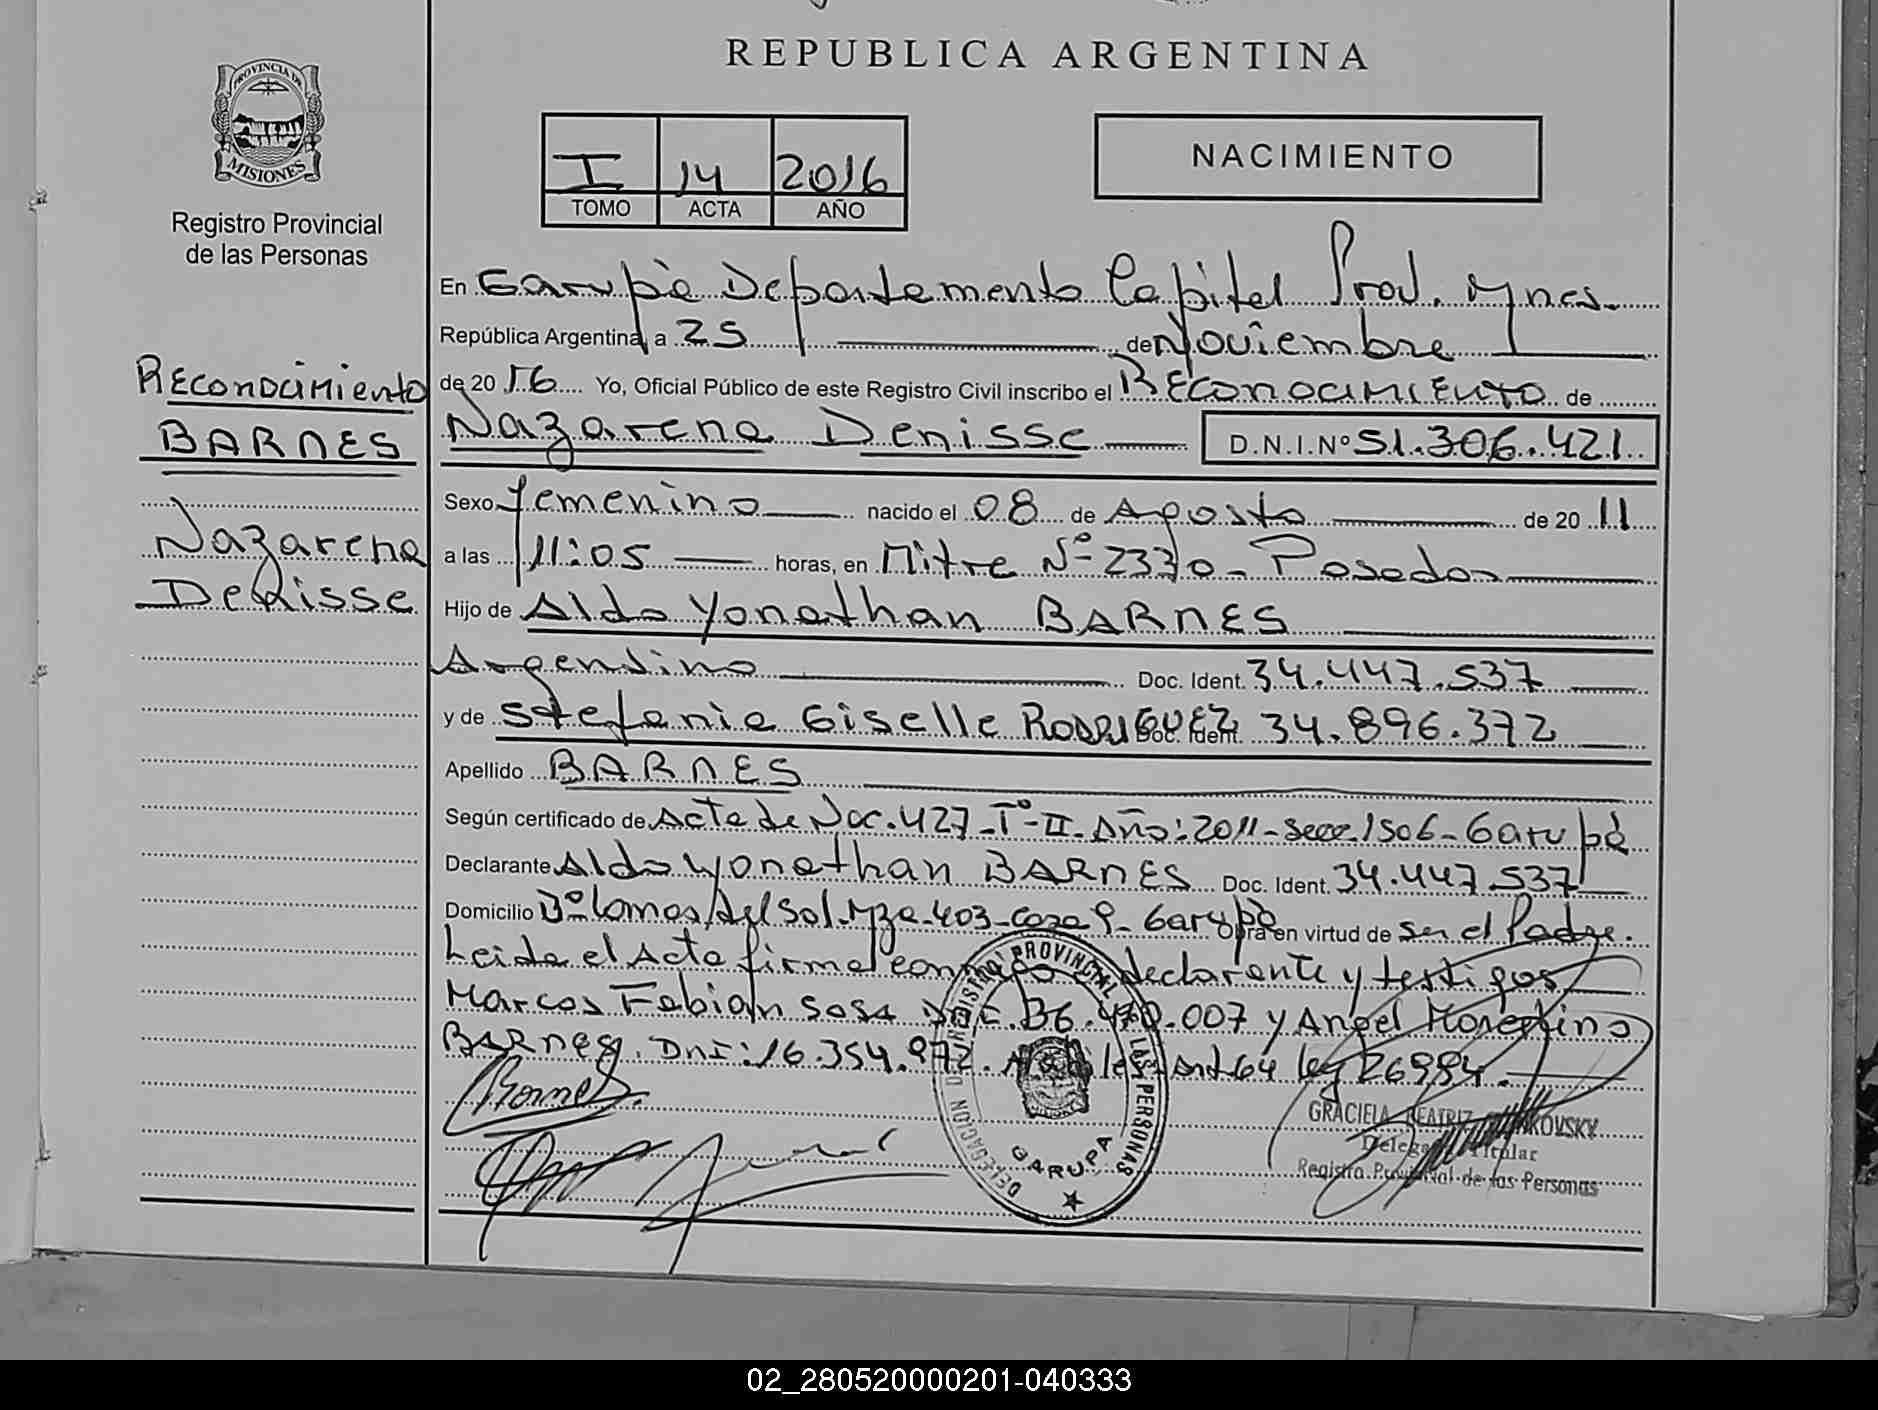 REPUBLICA ARGENTINA
PROVINCIA DE
MISIONES
Registro Provincial
de las Personas
I 14 2016
TOMO ACTA AÑO
NACIMIENTO
Reconocimiento
BARNES
Nazarena
Denisse
En Garupá Departamento Capital Prov. Mnes.
República Argentina, a 25 de Noviembre
de 20 16 Yo, Oficial Público de este Registro Civil inscribo el Reconocimiento de
Nazarena Denisse D.N.I.Nº 51.306.421
Sexo femenino nacido el 08 de Agosto de 20 11
a las 11:05 horas, en Mitre Nº 2370 - Posadas
Hijo de Aldo Yonathan BARNES
Argentino Doc. Ident. 34.447.537
y de Stefania Giselle RODRIGUEZ Doc. Ident. 34.896.372
Apellido BARNES
Según certificado de Acta de Nac. 427 - Tº - II - Año: 2011 - Secc. 1506 - Garupá
Declarante Aldo Yonathan BARNES Doc. Ident. 34.447.537
Domicilio Bº Lomas del Sol - Mza - 403 - Casa 9 - Garupá Obra en virtud de ser el Padre.
Leida el Acta firma conmigo declarante y testigos
Marcos Fabian Sosa Doc. 36.470.007 y Angel Florentino
Barnes. DNI: 16.354.972. Art 64 ley 26994.
Barnes
DELEGACION DEL REGISTRO PROVINCIAL DE LAS PERSONAS
GARUPA
GRACIELA BEATRIZ
Delegada Titular
Registro Provincial de las Personas
02_280520000201-040333